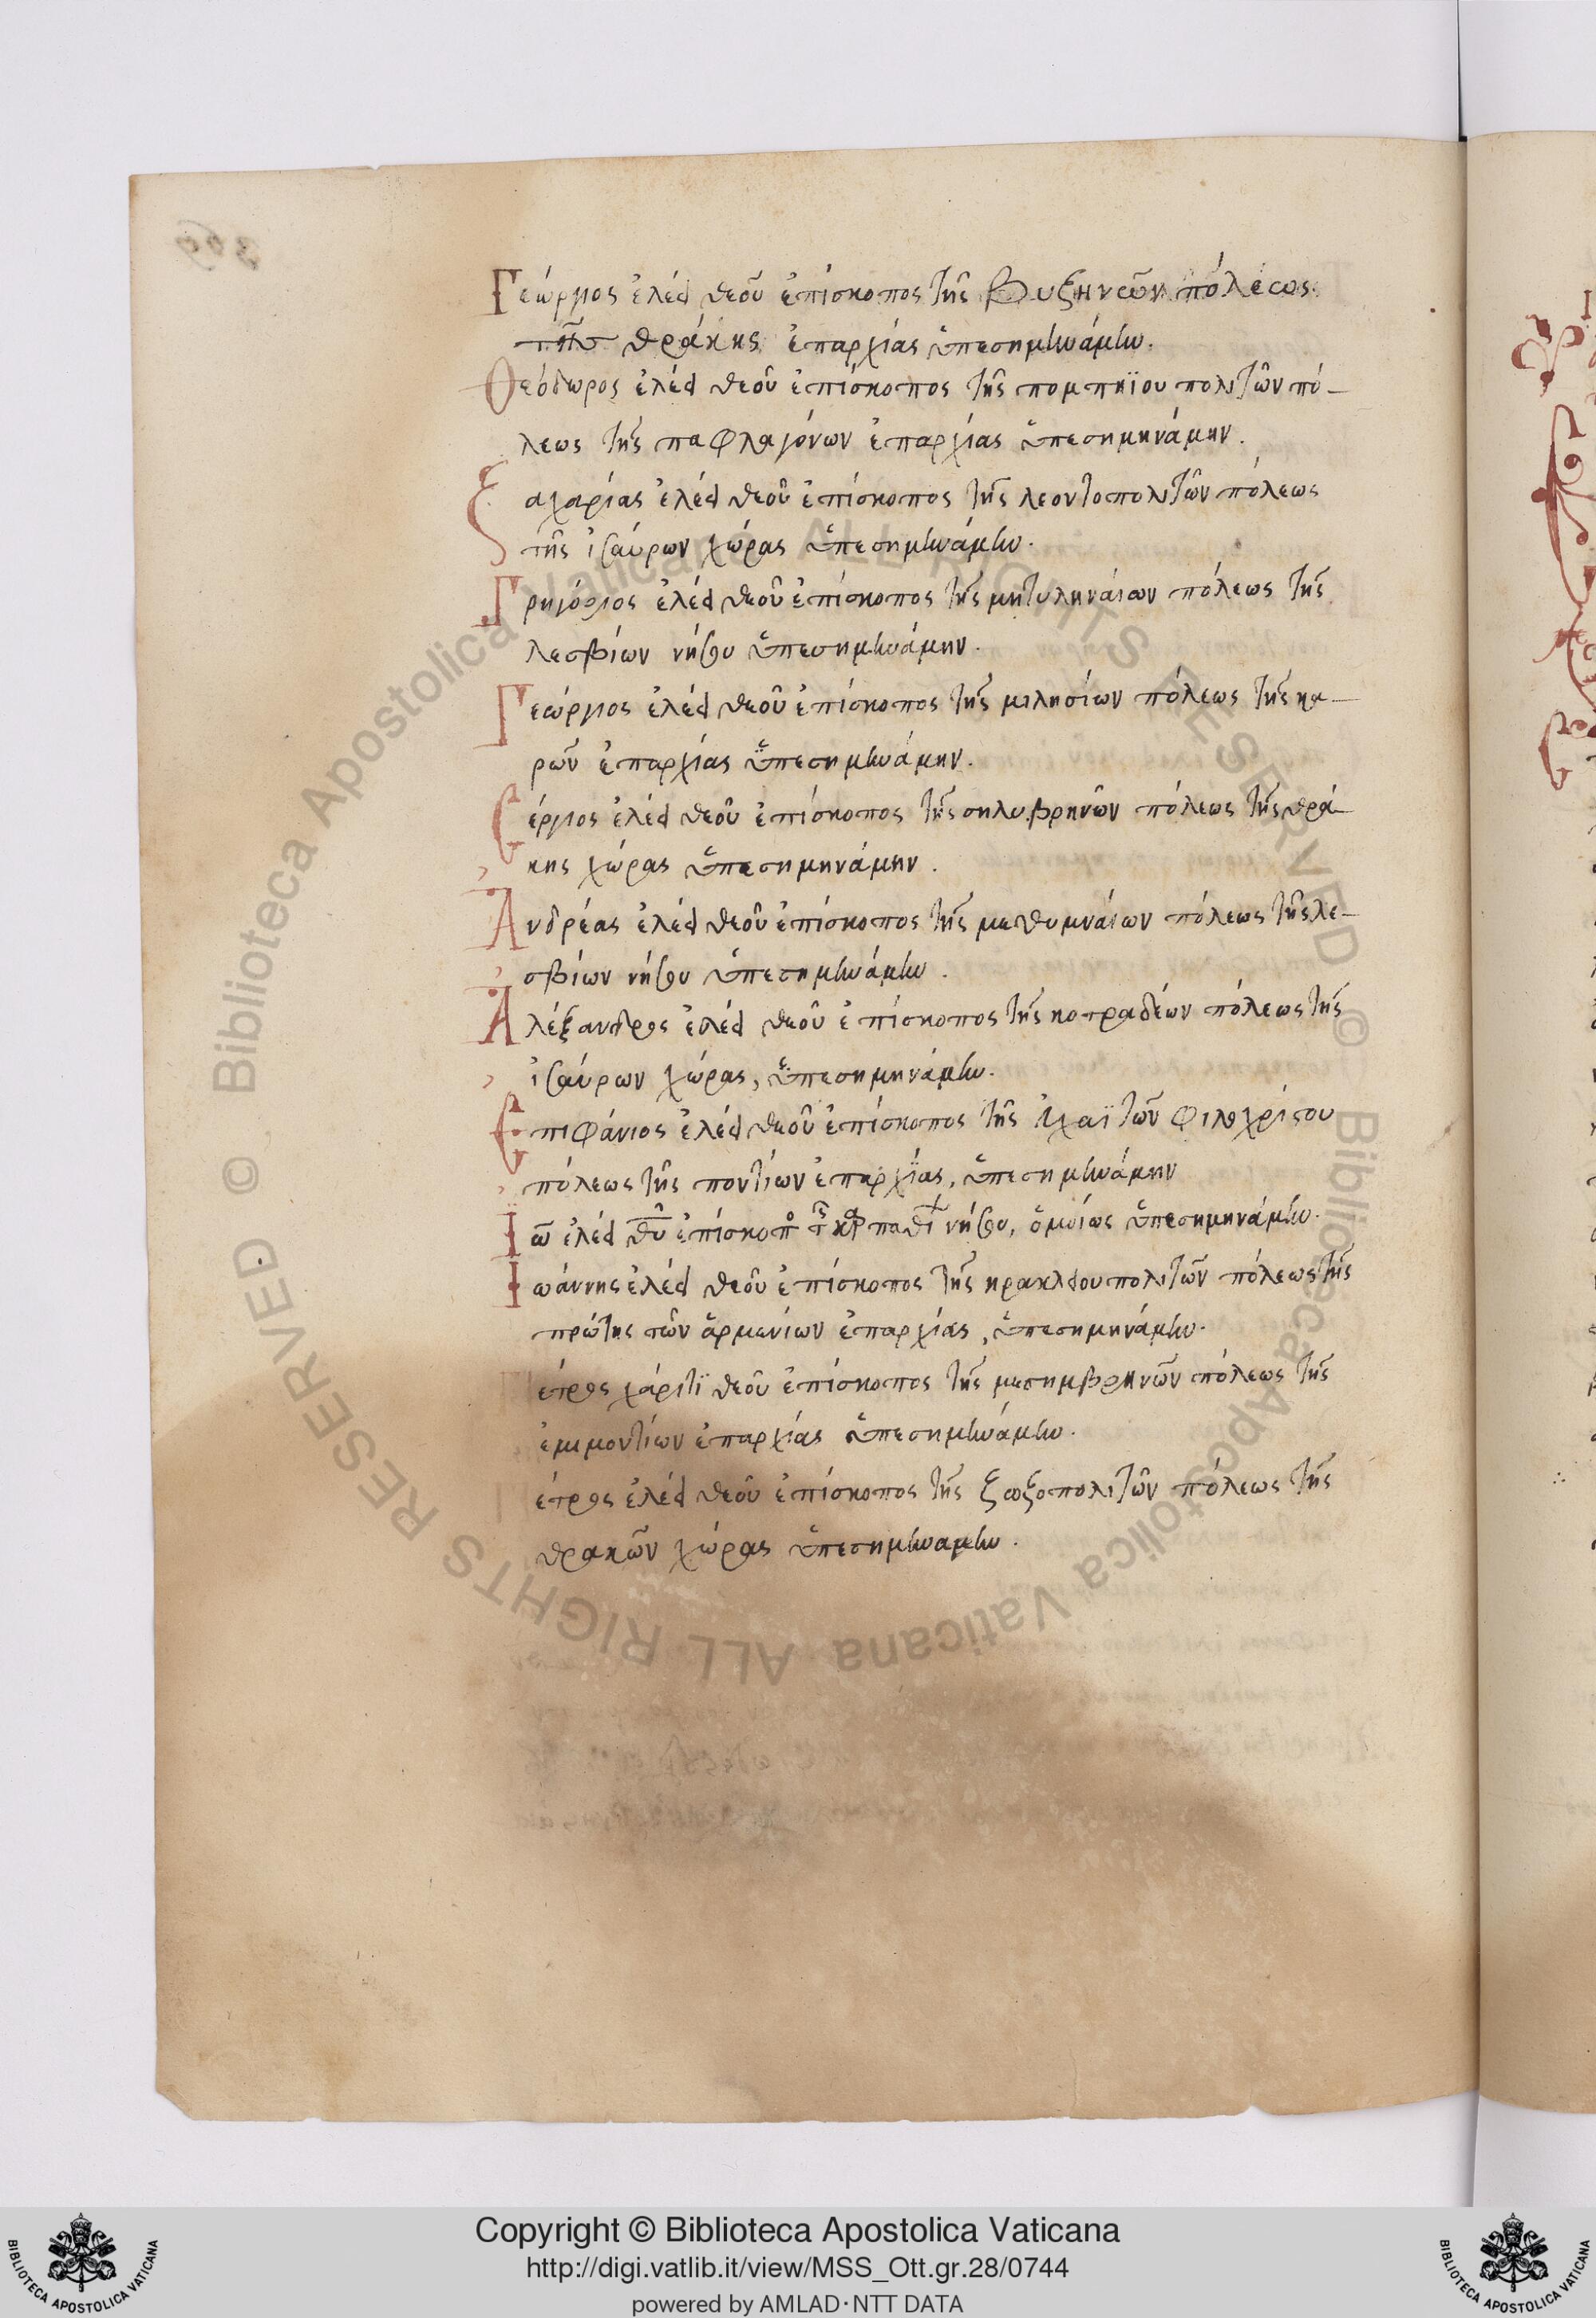 Γεώργιος ἐλέει θεοῦ ἐπίσκοπος τῆς Βυζηνῶν πόλεως
τῆς θράκης ἐπαρχίας ὑπεσημηνάμην.
Θεόδωρος ἐλέει θεοῦ ἐπίσκοπος τῆς πομπηϊουπολιτῶν πό-
λεως τῆς παφλαγόνων ἐπαρχίας ὑπεσημηνάμην.
Ζαχαρίας ἐλέει θεοῦ ἐπίσκοπος τῆς λεοντοπολιτῶν πόλεως
τῆς ἰσαύρων χώρας ὑπεσημηνάμην.
Γρηγόριος ἐλέει θεοῦ ἐπίσκοπος τῆς μητυληναίων πόλεως τῆς
λεσβίων νήσου ὑπεσημηνάμην.
Γεώργιος ἐλέει θεοῦ ἐπίσκοπος τῆς μιλησίων πόλεως τῆς κα-
ρῶν ἐπαρχίας ὑπεσημηνάμην.
Σέργιος ἐλέει θεοῦ ἐπίσκοπος τῆς σηλυβρηνῶν πόλεως τῆς θρά-
κης χώρας ὑπεσημηνάμην.
Ἀνδρέας ἐλέει θεοῦ ἐπίσκοπος τῆς μεθυμναίων πόλεως τῆς λε-
σβίων νήσου ὑπεσημηνάμην.
Ἀλέξανδρος ἐλέει θεοῦ ἐπίσκοπος τῆς κοτραδέων πόλεως τῆς
ἰσαύρων χώρας, ὑπεσημηνάμην.
Ἐπιφάνιος ἐλέει θεοῦ ἐπίσκοπος τῆς φιλοχρίστου
πόλεως τῆς ποντίων ἐπαρχίας, ὑπεσημηνάμην
Ἰω ἐλέει θυ ἐπίσκοπο νήσου, ὁμοίως ὑπεσημηνάμην.
Ἰωάννης ἐλέει θεοῦ ἐπίσκοπος τῆς ηρακλεουπολιτῶν πόλεως τῆς
πρώτης τῶν ἀρμενίων ἐπαρχίας, ὑπεσημηνάμην.
έτρος χάριτϊ θεοῦ ἐπίσκοπος τῆς μεσημβρηνῶν πόλεως τῆς
ἐμιμοντίων ἐπαρχίας ὑπεσημηνάμην.
έτρος ἐλέει θεοῦ ἐπίσκοπος τῆς ζωζοπολιτῶν πόλεως τῆς
θρακῶν χώρας ὑπεσημηναμην.
Biblioteca Apostolica Vaticana ALL RIGHTS RESERVED ©
Biblioteca Apostolica Vaticana ALL RIGHTS RESERVED ©
Copyright © Biblioteca Apostolica Vaticana
http://digi.vatlib.it/view/MSS_Ott.gr.28/0744
powered by AMLAD·NTT DATA
BIBLIOTECA APOSTOLICA VATICANA
BIBLIOTECA APOSTOLICA VATICANA